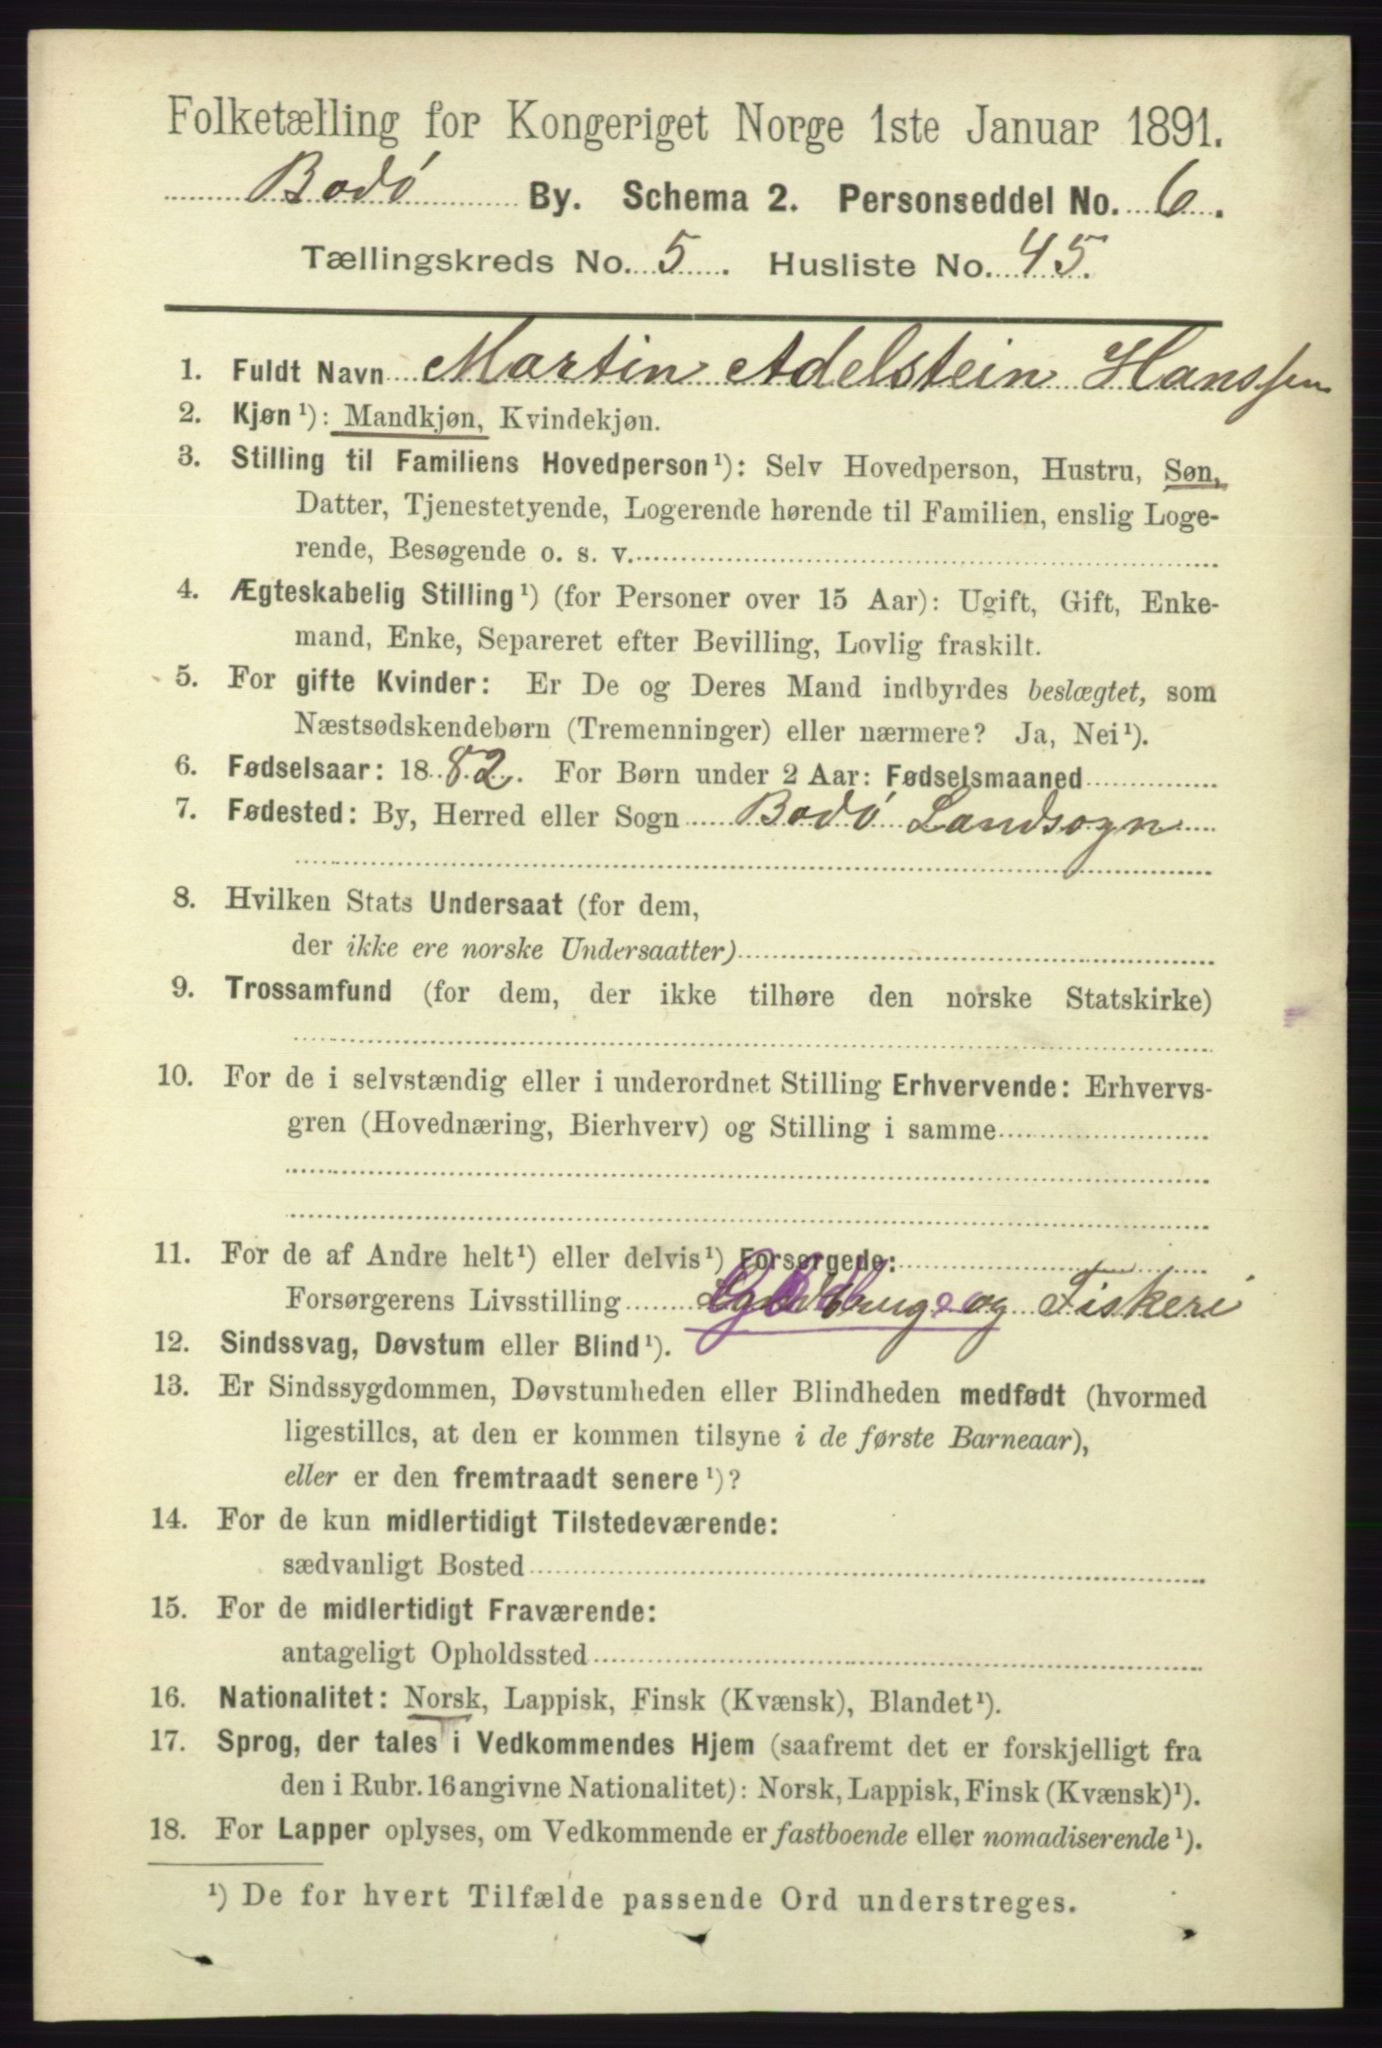 Folketælling for Kongeriget Norge 1ste Januar 1891.
Bodø By. Schema 2. Personseddel No. 6.
Tællingskreds No. 5. Husliste No. 45.
1. Fuldt Navn Martin Adelstein Hanssen
2. Kjøn ¹): Mandkjøn, Kvindekjøn.
3. Stilling til Familiens Hovedperson ¹): Selv Hovedperson, Hustru, Søn,
Datter, Tjenestetyende, Logerende hørende til Familien, enslig Loge-
rende, Besøgende o. s. v.
4. Ægteskabelig Stilling ¹) (for Personer over 15 Aar): Ugift, Gift, Enke-
mand, Enke, Separeret efter Bevilling, Lovlig fraskilt.
5. For gifte Kvinder: Er De og Deres Mand indbyrdes beslægtet, som
Næstsødskendebørn (Tremenninger) eller nærmere? Ja, Nei ¹).
6. Fødselsaar: 1882. For Børn under 2 Aar: Fødselsmaaned
7. Fødested: By, Herred eller Sogn Bodø Landsogn
8. Hvilken Stats Undersaat (for dem,
der ikke ere norske Undersaatter)
9. Trossamfund (for dem, der ikke tilhøre den norske Statskirke)
10. For de i selvstændig eller i underordnet Stilling Erhvervende: Erhvervs-
gren (Hovednæring, Bierhverv) og Stilling i samme
11. For de af Andre helt ¹) eller delvis ¹) Forsørgede:
Forsørgerens Livsstilling og Fiskeri
12. Sindssvag, Døvstum eller Blind ¹).
13. Er Sindssygdommen, Døvstumheden eller Blindheden medfødt (hvormed
ligestilles, at den er kommen tilsyne i de første Barneaar),
eller er den fremtraadt senere ¹)?
14. For de kun midlertidigt Tilstedeværende:
sædvanligt Bosted
15. For de midlertidigt Fraværende:
antageligt Opholdssted
16. Nationalitet: Norsk, Lappisk, Finsk (Kvænsk), Blandet ¹).
17. Sprog, der tales i Vedkommendes Hjem (saafremt det er forskjelligt fra
den i Rubr. 16 angivne Nationalitet): Norsk, Lappisk, Finsk (Kvænsk) ¹).
18. For Lapper oplyses, om Vedkommende er fastboende eller nomadiserende ¹).
¹) De for hvert Tilfælde passende Ord understreges.